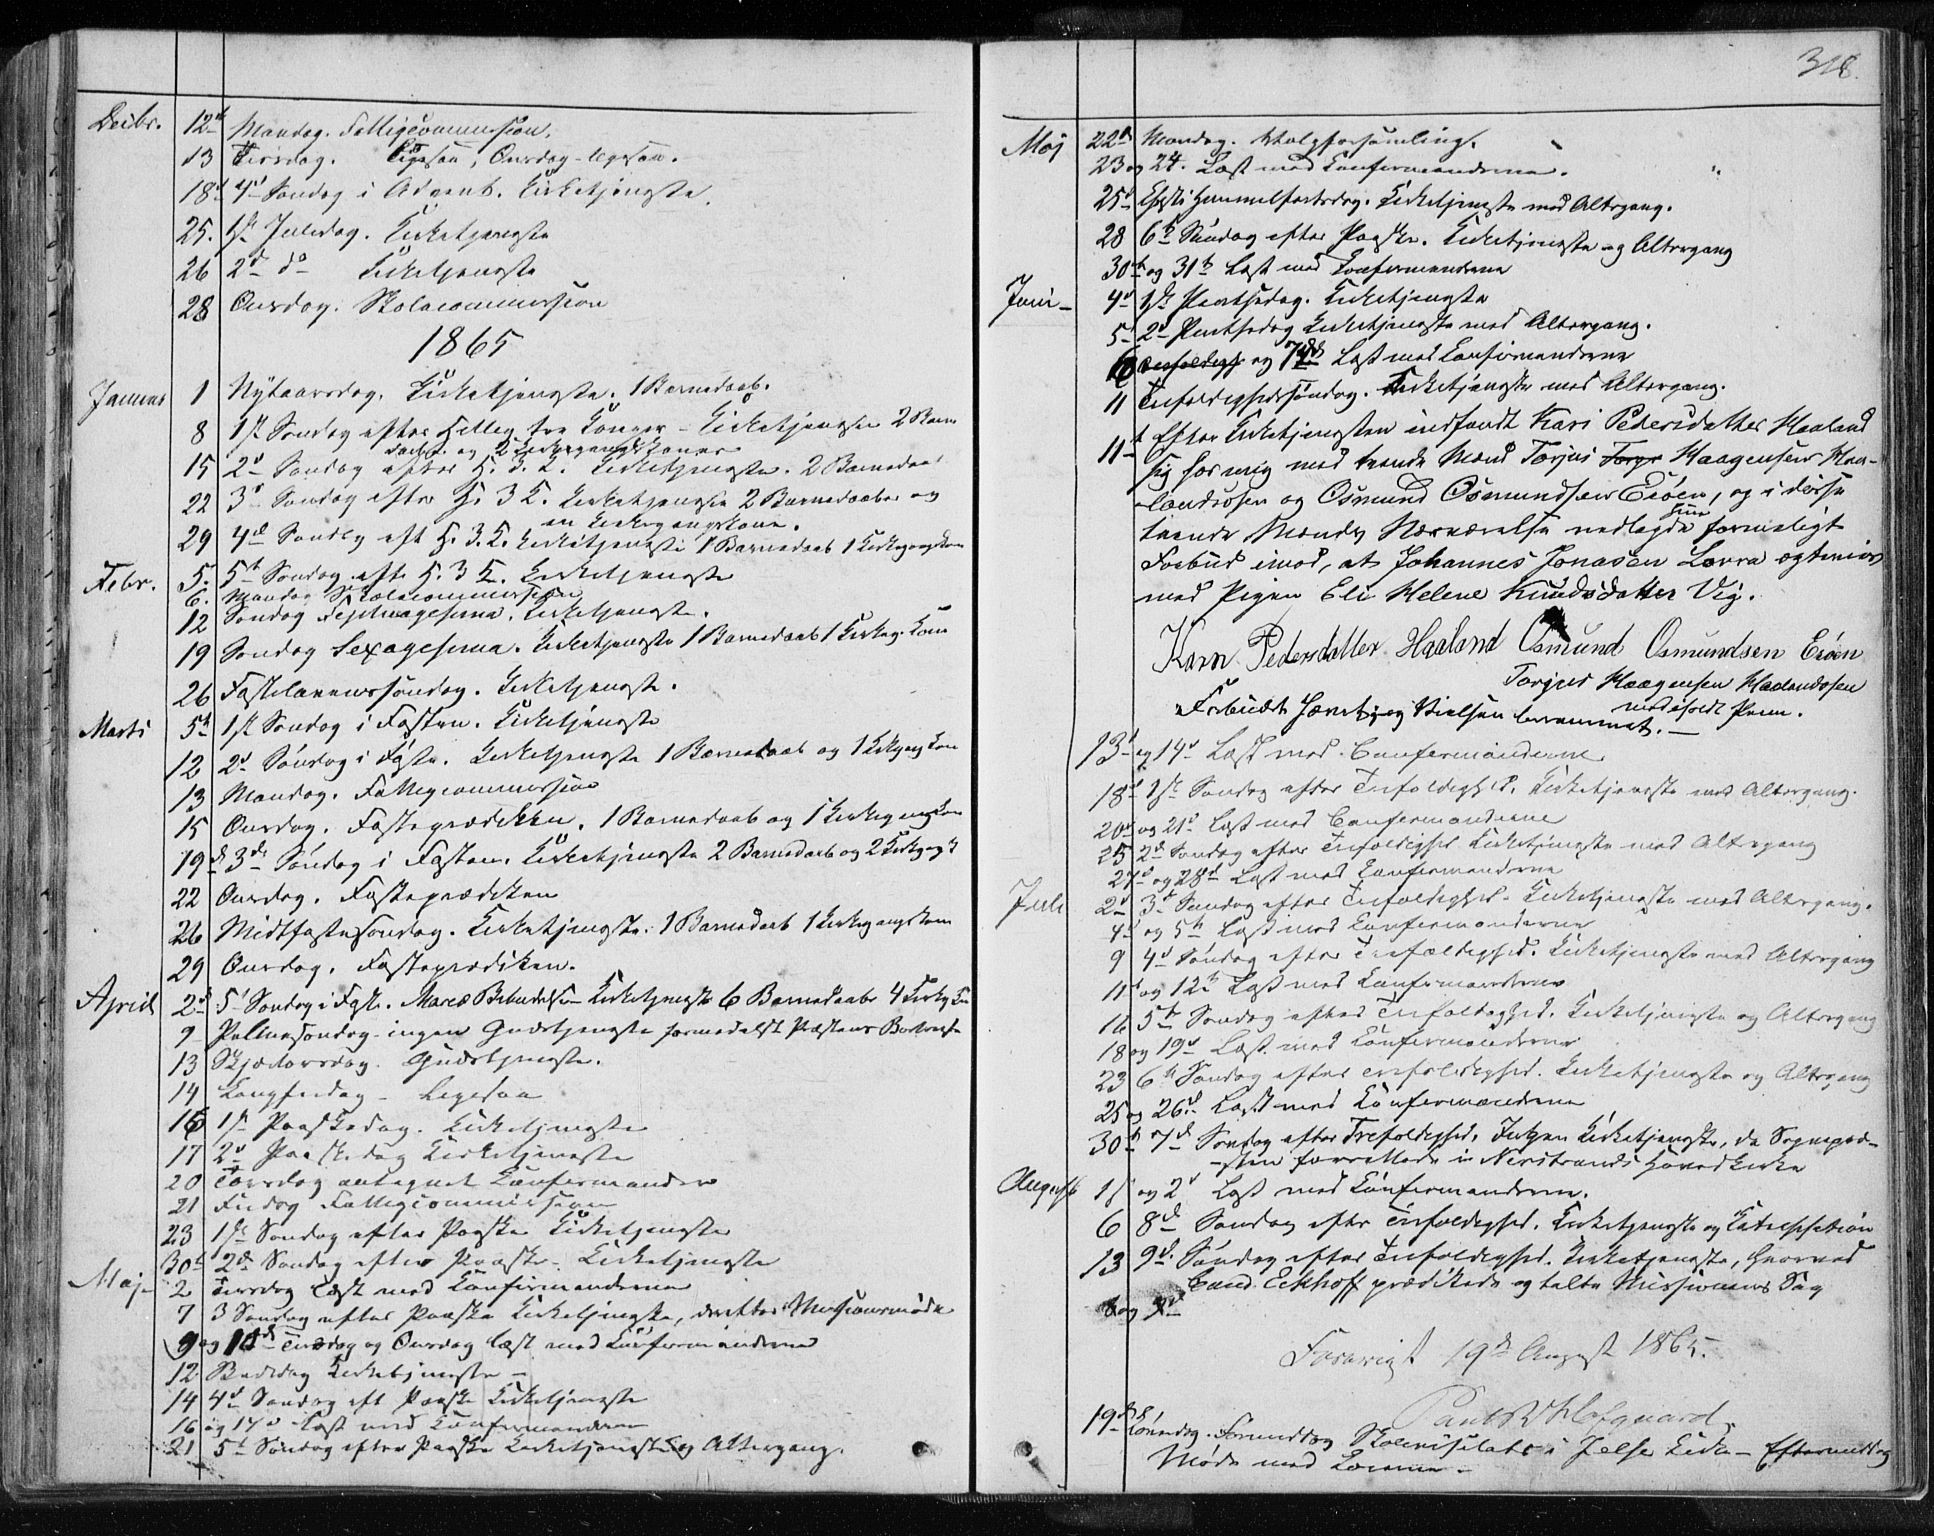 Decbr. 12te Mandag. Fattigcommission.
13 Tirsdag. Ligesaa, Onsdag - ligesaa.
18d 4d Søndag i Advent. Kirketjeneste.
25. 1ste Juledag. Kirketjeneste
26 2d do Kirketjeneste
28 Onsdag. Skolecommission
1865
Januar 1 Nytaarsdag. Kirketjeneste. 1 Barnedaab.
8 1ste Søndag efter Hellig tre Konger - Kirketjeneste 2 Barne
daab og 2 Kirkegangskoner
15 2d Søndag efter H. 3. K. Kirketjeneste. 2 Barnedaab
22 3d Søndag efter H. 3 K. Kirketjeneste 2 Barnedaaber og
en Kirkegangskone.
29 4d Søndag eft H. 3. K. Kirketjeneste 1 Barnedaab 1 Kirkegangskone
Febr. 5. 5te Søndag eft. H. 3 K. Kirketjeneste
6. Mandag Skolecommission
12 Søndag Septuagesima. Kirketjeneste.
19 Søndag Sexagesima. Kirketjeneste 1 Barnedaab 1 Kirkeg. Kone
26 Fastelavnssøndag. Kirketjeneste.
Marts 5te 1ste Søndag i Fasten. Kirketjeneste
12 2d Søndag i Faste. Kirketjeneste 1 Barnedaab og 1 Kirkegangkone
13 Mandag. Fattigcommission
15 Onsdag. Fasteprædiken. 1 Barnedaab og 1 Kirkegangkone
19d 3die Søndag i Fasten. Kirketjeneste 2 Barnedaab og 2 Kirkegang
22 Onsdag. Fasteprædiken
26 Midtfastesøndag. Kirketjeneste. 1 Barnedaab 1 Kirkegangskone
29 Onsdag. Fasteprædiken.
April 2d 5 Søndag i Faste. Mariæ Bebudelse - Kirketjeneste 6 Barnedaabe 4 Kirkeg. Ko
9 Palmesøndag - ingen Gudstjeneste formedelst Præstens Bortreise
13 Skjærtorsdag. Gudstjeneste.
14 Langfredag - Ligesaa
16 1ste Paaskedag. Kirketjeneste
17 2d Paaskedag Kirketjeneste
20 Torsdag antegnet Konfirmander
21 Fredag Fattigcommission
23 1ste Søndag efter Paaske Kirketjeneste
30te 2den Søndag efter Paaske - Kirketjeneste
Maj- 2 Tirsdag læst med Konfirmanderne
7 3 Søndag efter Paaske Kirketjeneste, derefter Missionsmøde
9 og 10de Tirsdag og Onsdag læst med Konfirmanderne
12 Bededag Kirketjeneste -
14 4d Søndag eft Paaske Kirketjeneste
16 og 17d læst med Konfirmanderne
21 5te Søndag efter Paaske Kirketjeneste og Altergang.
318.
Maj 22de Mandag. Valgforsamling.
23 og 24. Læst med Confirmanderne.
25d Christi Himmelfartsdag. Kirketjeneste med Altergang.
28 6te Søndag efter Paaske. Kirketjeneste og Altergang
30te og 31te Læst med Confirmanderne
Juni - 4d 1ste Pintsedag. Kirketjeneste
5 2d Pintsedag Kirketjeneste med Altergang.
6 og 7de Læst med Confirmanderne
11 Trefoldighedssøndag. Kirketjeneste med Altergang.
11te Efter Kirketjenesten indfandt Kari Pedersdatter Haaland
sig hos mig med tvende Mænd Torjus Torge Haagensen Haa-
landsosen og Osmund Osmundsen Eiøen, og i disse
tvende Mænds Nærværelse nedlagde hun formeligt
Forbud imod, at Johannes Jonasen Lovra ægtevies
med Pigen Eli Helene Knudsdatter Vig.
Karn Pedersdatter Haaland Osmund Osmundsen Eiøen
Torjus Haagensen Haalandsosen
med iholdt Pen.
Forbudt bekommet.
13d og 14d Læst med Confirmanderne
18d 1ste Søndag efter Trefoldighed. Kirketjeneste med Altergang.
20d og 21d læst med Confirmanderne
25 2d Søndag efter Trefoldighed Kirketjeneste med Altergang
27d og 28d Læst med Confirmanderne
Juli 2d 3d Søndag efter Trefoldighed - Kirketjeneste med Altergang.
4d og 5te Læst med Confirmanderne
9 4d Søndag efter Trefoldighed. Kirketjeneste med Altergang
11d og 12te Læst med Konfirmanderne
16 5te Søndag efter Trefoldighed. Kirketjeneste og Altergang
18 og 19d Læst med Confirmanderne
23 6te Søndag efter Trefoldighed. Kirketjeneste og Altergang
25 og 26d Læst med Konfirmanderne
30te 7d Søndag efter Trefoldighed. Ingen Kirketjeneste, da Sognepræ-
-sten forrettede i Nerstrands Hovedkirke
August 1ste og 2d Læst med Konfirmanderne.
6 8d Søndag efter Trefoldighed. Kirketjeneste og Katechisation
13 9d. Søndag efter Trefoldighed. Kirketjeneste, hvorved
Cand. Eckhoff prædikede og talte Missionens Sag
8 og 9d
Foreviist 19de August 1865.
Paul W Hofgaard
19de Lørdag. Formiddag Skolevisitats i Jelse Kirke - Eftermiddag
Møde med Lærerne -